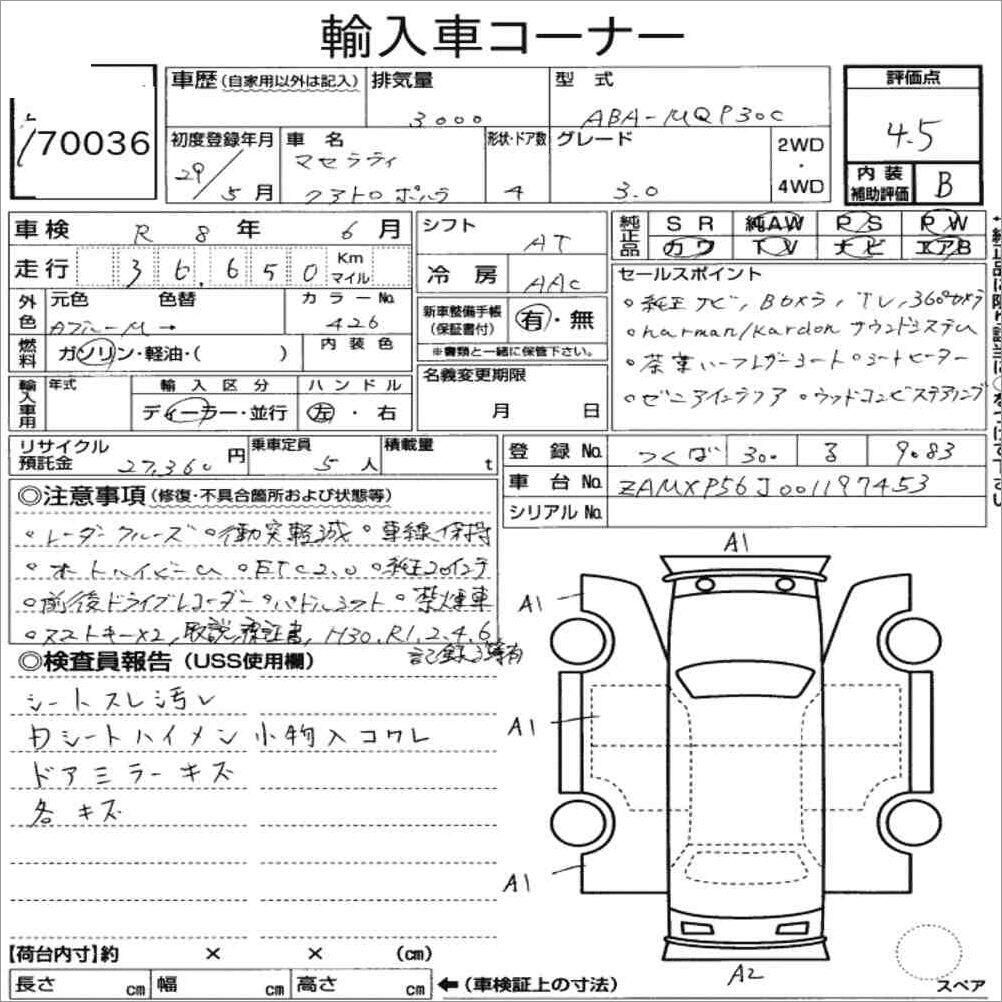 輸入車コーナー
70036
車歴(自家用以外は記入)
排気量
3000
型式
ABA-MQP30C
評価点
4.5
初度登録年月
29/5月
車名
マセラティ
クアトロポルテ
形状・ドア数
4
グレード
3.0
2WD
・
4WD
内装
補助評価
B
車検 R 8年 6月
走行 36,650 Km
マイル
外色
元色 色替
Aブルー M →
カラーNo.
426
燃料
ガソリン・軽油・( )
内装色
輸入車用
年式
輸入区分
ディーラー・並行
ハンドル
左・右
シフト
AT
冷房
AAC
新車整備手帳
(保証書付)
有・無
※書類と一緒に保管下さい。
名義変更期限
月 日
純正品
SR 純AW PS PW
カワ TV ナビ エアB
セールスポイント
○純正ナビ, Bカメラ, TV, 360°カメラ
○harman/kardonサウンドシステム
○茶革ハーフレザーシート○シートヒーター
○ゼニアインテリア ○ウッドコンビステアリング
リサイクル
預託金 27,360円
乗車定員
5人
積載量
t
登録No.
つくば 300 る 9.83
車台No.
ZAMXP56J001197453
シリアルNo.
◎注意事項(修復・不具合箇所および状態等)
○レーダークルーズ ○衝突軽減 ○車線保持
○オートハイビーム ○ETC2.0 ○純正20インチ
○前後ドライブレコーダー○パドルシフト ○禁煙車
○マストキー×2, 取説, 保証書, H30,R1,2,4,6
記録簿有
◎検査員報告(USS使用欄)
シートスレ汚レ
内シートハイメン小物入コワレ
ドアミラーキズ
各キズ
A1
A1
A1
A1
A2
スペア
【荷台内寸】約 × × (cm)
長さ cm 幅 cm 高さ cm
←(車検証上の寸法)